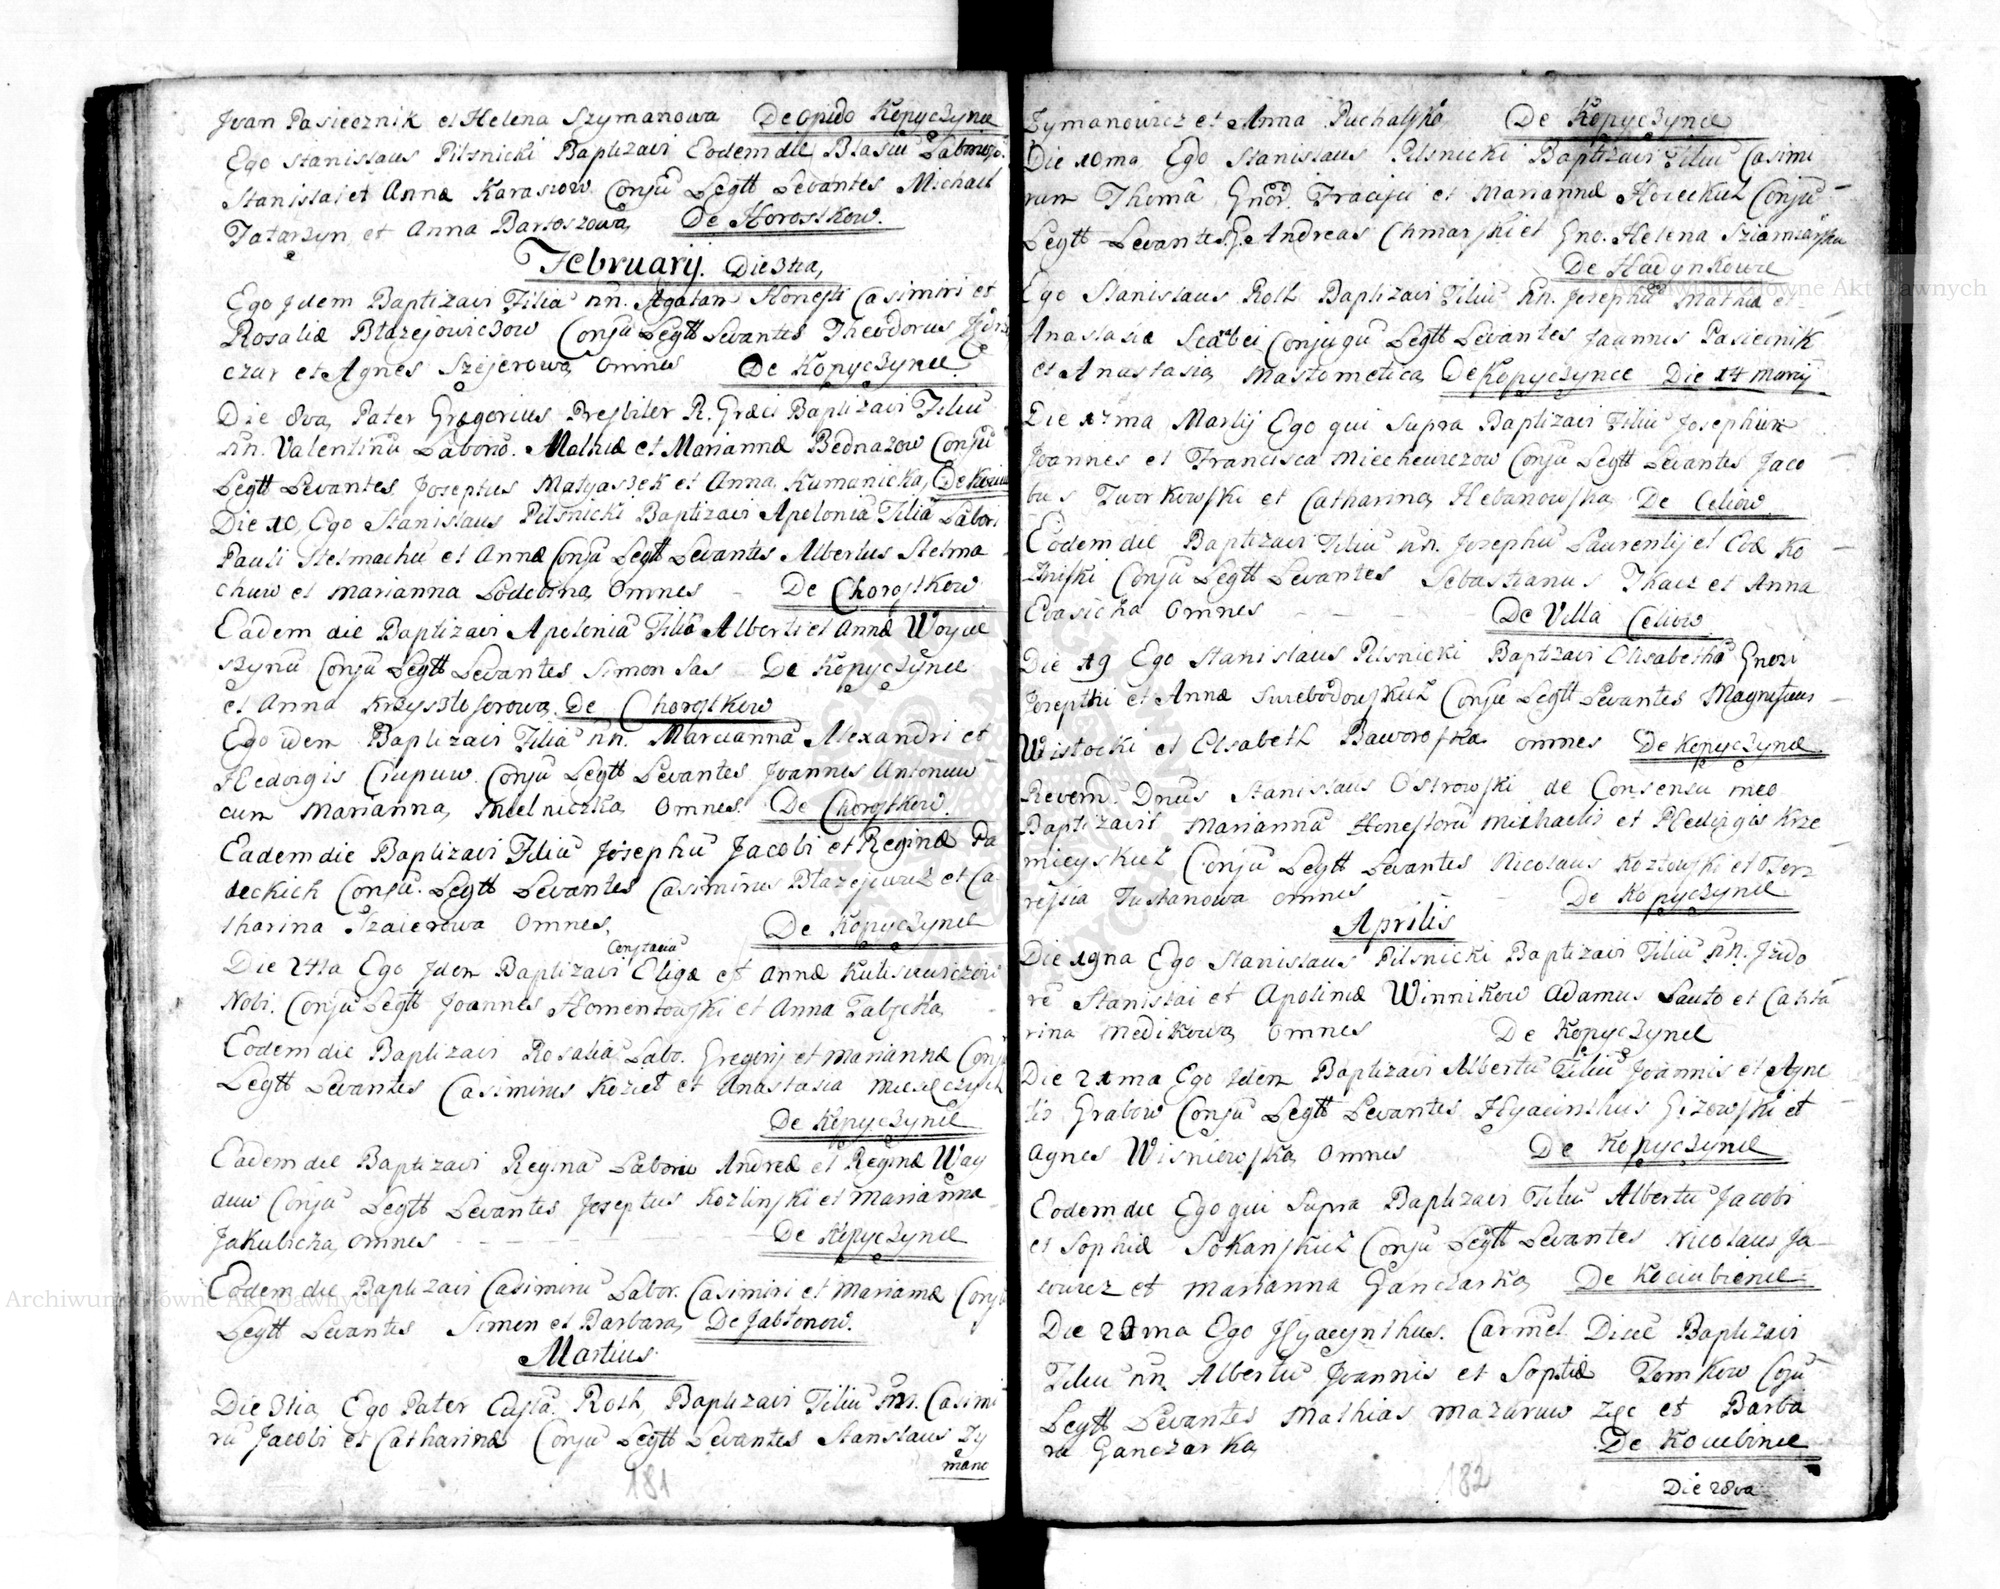 Jvan Pasiecznik et Helena Szymanowa De Opido Kopyczynce
Ego Stanislaus Pilsnicki Baptizavi Eodem die Blasiu Laborioso.
Stanislai et Anna Karasiow Conju Legtt Levantes Michael
Tatarzyn et Anna Bartoszowa, De Horostkow.
Februarij. Die 3tia,
Ego Jdem Baptizavi Filia nn. Agatan Honesti Casimiri et
Rosaliæ Błazejowiczow Conju Legtt Levantes Theodorus
czur et Agnes Szejerowa, omnes De Kopyczynce
Die 8va, Pater Gregorius Presbiter R. Græci Baptizavi Filiu
nn. Valentinu Laborio. Mathiæ et Mariannæ Bednazow Conju
Legtt Levantes Josephus Matyaszek et Anna Kumanicka,
Die 10, Ego Stanislaus Pilsnicki Baptizavi Apolonia Filia Labori
Pauli Stelmachu et Annæ Conju Legtt Levantes Albertus Stelma
chuw et Marianna Lodebina, Omnes De Chorostkow
Eadem die Baptizavi Apolonia Filia Alberti et Annæ Woyce
szynu Conju Legtt Levantes Simon Sas De Kopyczynce
et Anna Krzysztoforowa, De Chorostkow
Ego idem Baptizavi Filia nn. Marcianna Alexandri et
Hedvigis Ciupuw Conju Legtt Levantes Joannes Antonuw
cum Marianna, Mielniczka Omnes De Chorostkow.
Eadem die Baptizavi Filiu Josephu Jacobi et Reginæ Ra
deckich Conju Legtt Levantes Casimirus Błazejewicz et Ca
tharina Szaierowa Omnes, De Kopyczynce
Constacia
Die 24ta Ego Jdem Baptizavi Eligæ et Annæ
Nobi. Conju Legtt Joannes Homentowski et Anna
Eodem die Baptizavi Rosalia Labo. Gregorij et Mariannæ Conju
Legtt Levantes Casimirus Kozieł et Anastasia
De Kopyczynce
Eadem die Baptizavi Regina Laborio Andreæ et Reginæ Way
duw Conju Legtt Levantes Josephus Kozlinski et Marianna
Jakubicka, omnes De Kopyczynce
Eodem die Baptizavi Casimiru Labor. Casimiri et Mariannæ Conju
Legtt Levantes Simon et Barbara, De Jabłonow.
Martius
Die 3tia, Ego Pater Roth, Baptizavi Filiu nn. Casimi
ru Jacobi et Catharinæ Conju Legtt Levantes Stanislaus Zy
mano
181
Zymanowicz et Anna Puchalska De Kopyczynce
Die 10ma Ego Stanislaus Pilsnicki Baptizavi Filiu Casimi
rum Thoma Gnor. et Mariannæ Conju
Legtt Levantes G. Andreas Chmarski et Gno. Helena
De Hadynkowce
Ego Stanislaus Roth Baptizavi Filiu nn. Josephu Mathiæ et
Anastasiæ Conjugu Legtt Levantes Joannes Pasiecnik
et Anastasia, De Kopyczynce Die 14 Martij
Die 17ma Martij Ego qui Supra Baptizavi Filiu Josephum
Joannes et Francisca Miecheuiczow Conju Legtt Levantes Jaco
bus Tworkowski et Catharina, Hebanowska De Celiow
Eodem die Baptizavi Filiu nn. Josephu Laurentij et Evæ Ko
Conju Legtt Levantes Sebastianus Tkacz et Anna
Evasicha Omnes De Villa Celiow
Die 19 Ego Stanislaus Pilsnicki Baptizavi Elisabetha Gnori
Josephi et Annæ Conju Legtt Levantes Magnificus
Wistocki et Elsabeth Baworoska omnes De Kopyczynce
Revern. Dnus Stanislaus Ostrowski de Consensu meo
Baptizavit Marianna Honestoru Michaelis et Hedvigis Krze
mieyskich Conju Legtt Levantes Nicolaus Kozłowski et
resia Tustanowa omnes De Kopyczynce
Aprilis
Die 19na Ego Stanislaus Pilsnicki Baptizavi Filiu nn. Jzido
re Stanislai et Apoliniæ Winnikow Adamus Lauto et Catha
rina Medikowa, omnes De Kopyczynce
Die 21ma Ego Jdem Baptizavi Albertu Filiu Joannis et Agne
tis Grabow Conju Legtt Levantes Hyacinthus Gizowski et
Agnes Wisniewska, Omnes De Kopyczynce
Eodem die Ego qui Supra Baptizavi Filiu Albertu Jacobi
et Sophiæ Sokanskich Conju Legtt Levantes Nicolaus Ja
cewicz et Marianna Ganczarka, De Kociubience
Die Ego Hyacynthus. Carmel. Baptizavi
Filiu nn. Albertu Joannis et Sophiæ Tomkow Coju
Legtt Levantes Mathias Mazuruw et Barba
ra Ganczarka De Kociubince
182
Die 28va
Archiwum Główne Akt Dawnych
Archiwum Główne Akt Dawnych